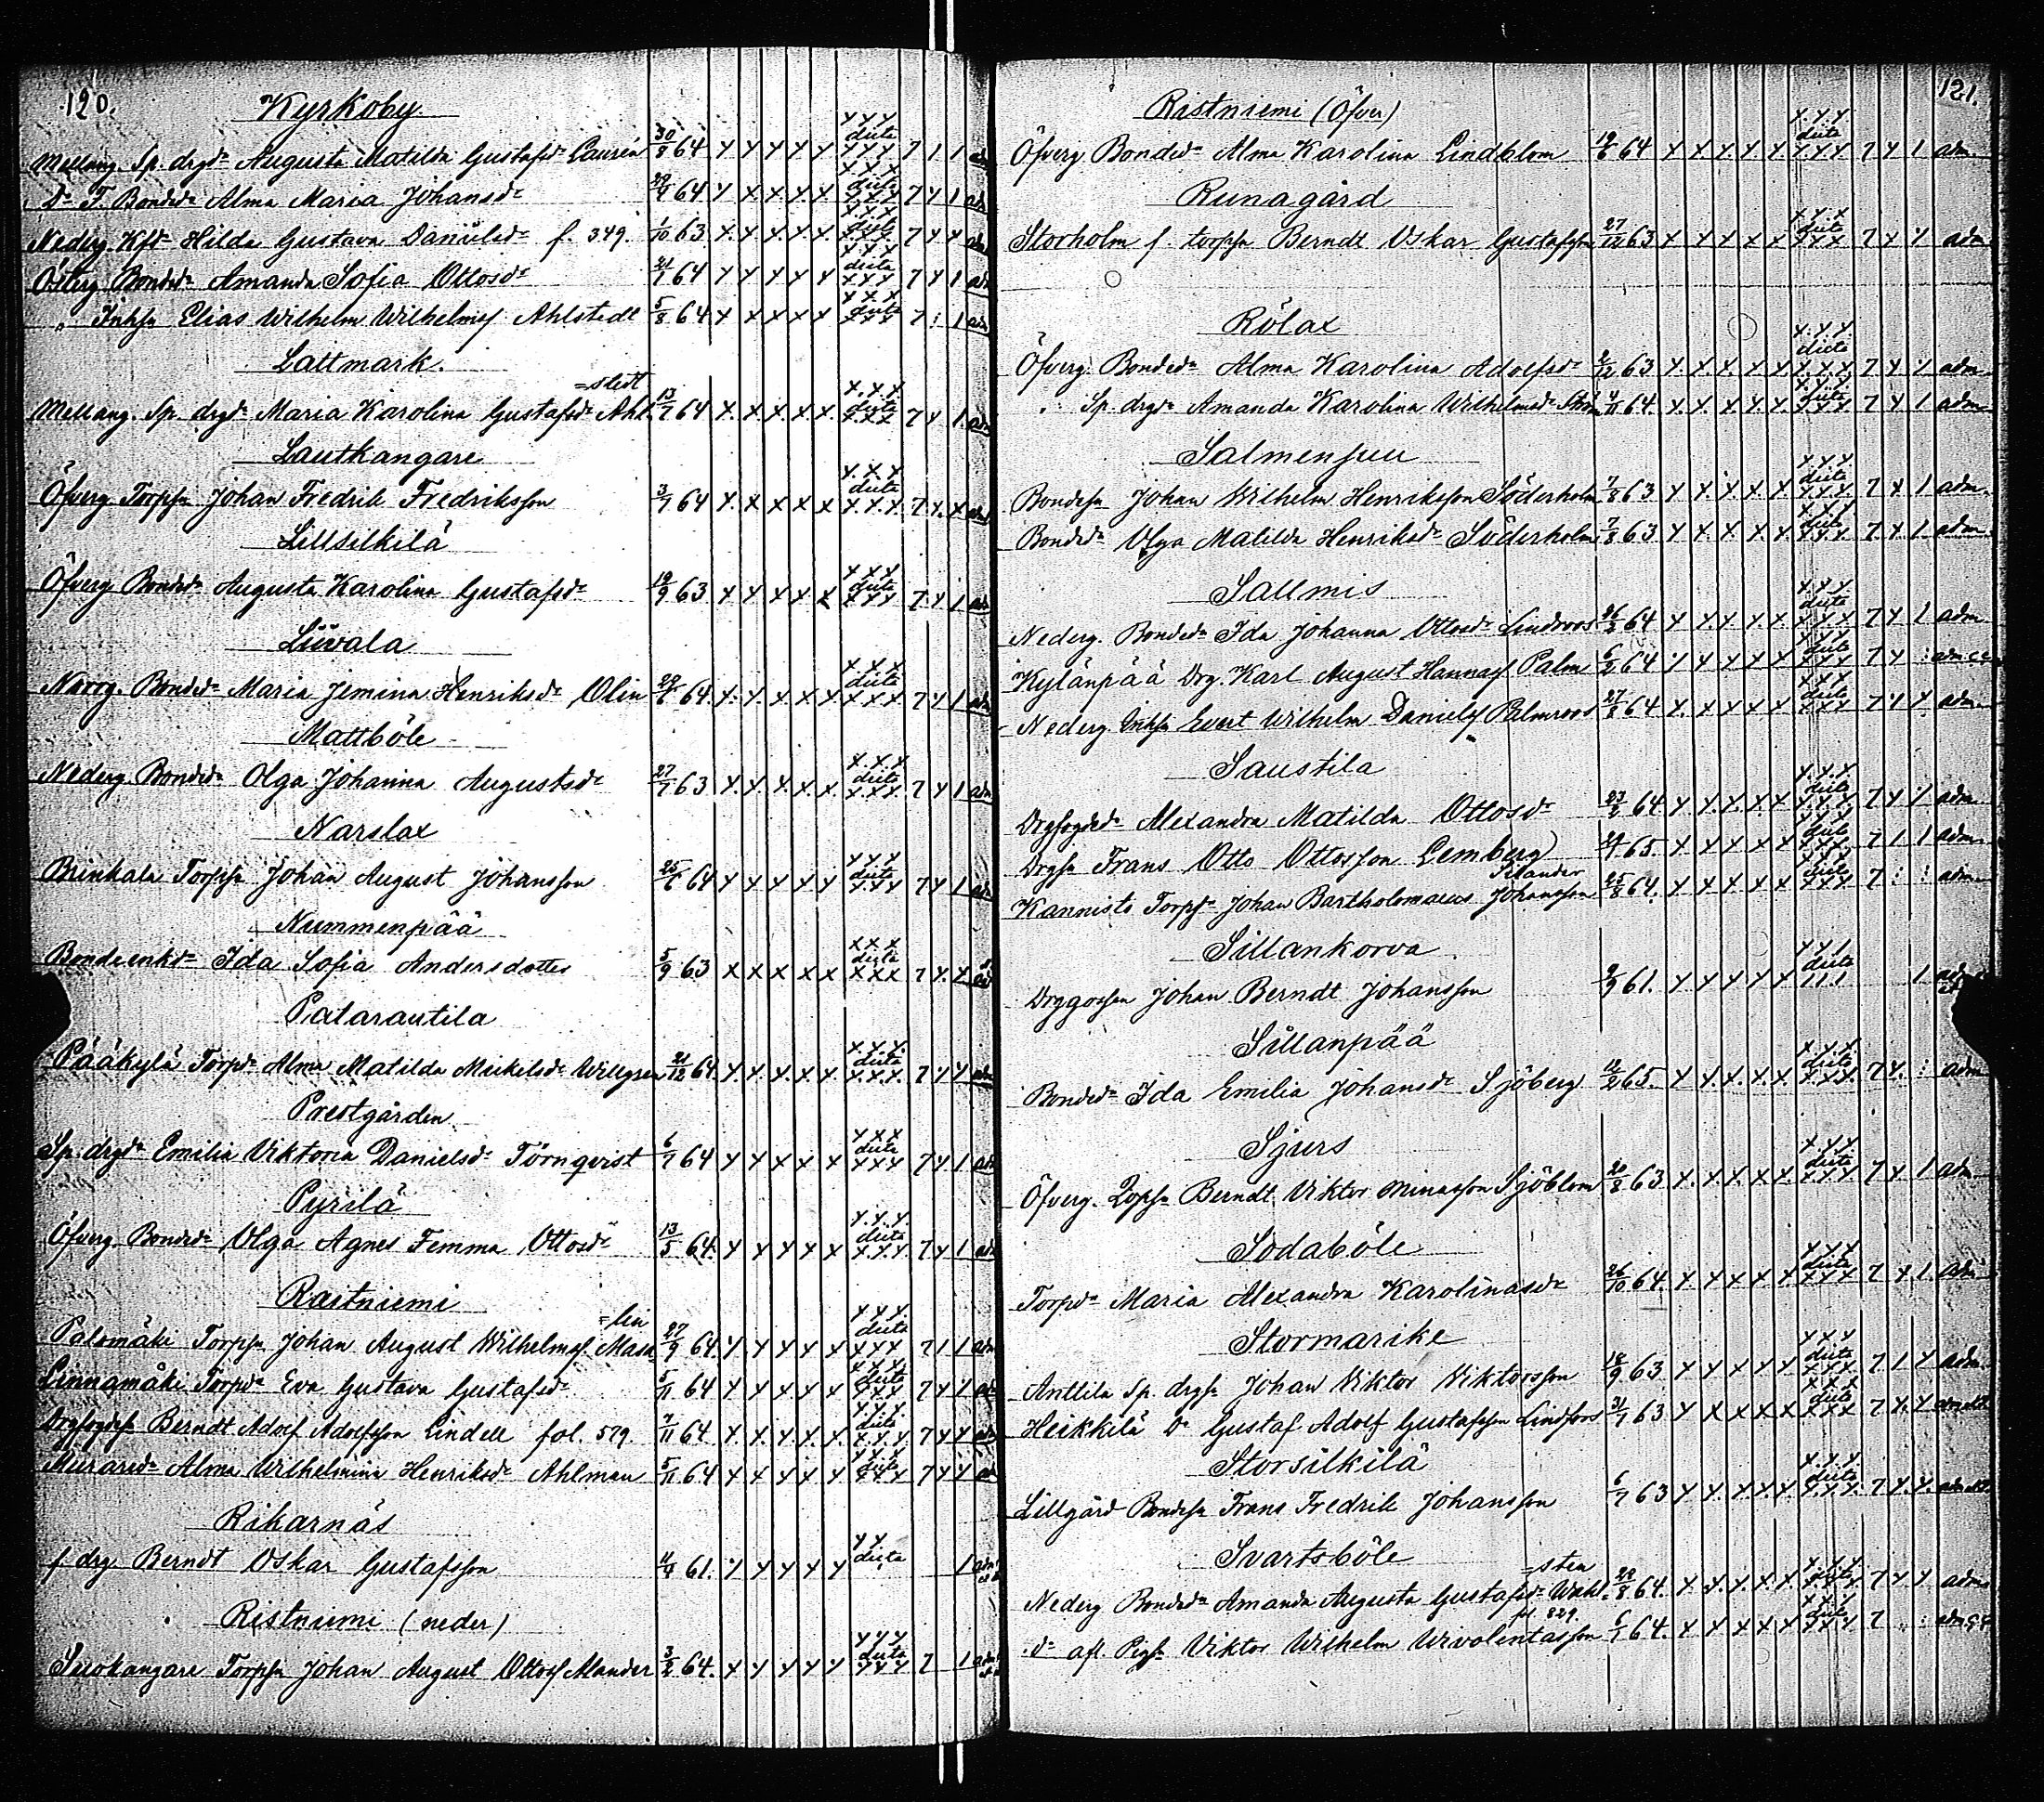 120.
Kyrkoby
Mellang. Sp. drgdr Augusta Matilda Gustafsdr Laurén 30/8 64 x x x x x x x x dicta x x x 7 1 1 adm
Dr T. Bondedr Alma Maria Johansdr 29/9 64 x x x x x x x x dicta x x x 7 x 1 adm
Nederg. Kfdr Hilda Gustava Danielsdr f. 349. 1/10 63 x x x x x x x x dicta x x x 7 x x adm
Österg Bondedr Amanda Sofia Ottosdr 21/7 64 x x x x x x x x dicta x x x 7 x 1 adm
" Inhsn Elias Wilhelm Wilhelmsf Ahlstedt 5/8 64 x x x x x x x x dicta x x x 7 : 1 adm
Lattmark.
=stedt
Mellang. Sp. drgdr Maria Karolina Gustafsdr Ahl= 13/7 64 x x x x x x x x dicta x x x 7 x 1 adm
Lautkangare
Öfverg Torpsn Johan Fredrik Fredriksson 3/7 64 x x x x x x x x dicta x x x 7 x x adm
Lillsilkilä
Öfverg Bondedr Augusta Karolina Gustafsdr 19/9 63 x x x x x x x x dicta x x x 7 x 1 adm
Liuvala
Norrg. Bondedr Maria Jemina Henriksdr Olin 64 x x x x x x x x dicta x x x 7 x 1 adm
Mattböle
Nederg Bondedr Olga Johanna Augustsdr 27/7 63 x x x x x x x x dicta x x x 7 x 1 adm
Narslax
Brinkala Torpsn Johan August Johansson 25/6 64 x x x x x x x x dicta x x x 7 x 1 adm
Nummenpää
Bondeenkdr Ida Sofia Andersdotter 5/9 63 x x x x x x x x dicta x x x 7 x x
Patarautila
Pääkylä Torpdr Alma Matilda Mickelsdr Willgren 21/12 64 x x x x x x x x dicta x x x 7 x x adm
Prestgården
Sp. drgdr Emilia Viktoria Danielsdr Törnqvist 6/7 64 x x x x x x x x dicta x x x 7 x 1 adm
Pyrilä
Öfverg. Bondedr Olga Agnes Femma Ottosdr 13/5 64 x x x x x x x x dicta x x x 7 x 1 adm
Rastniemi
=lin
Palomäki Torpsn Johan August Wilhelmsf. Masa= 27/9 64 x x x x x x x x dicta x x x 7 1 1 adm
Linnamäki Torpdr Eva Gustava Gustafsdr 5/11 64 x x x x x x x x dicta x x x 7 x 1 adm
Drgfogdesn Berndt Adolf Adolfsson Lindell fol. 579. 7/11 64 x x x x x x x x dicta x x x 7 x x adm
Muraredr Alma Wilhelmina Henriksdr Ahlman 5/11 64 x x x x x x x x dicta x x x 7 x x adm
Rikarnäs
f. drg. Berndt Oskar Gustafsson 61. x x x x x x x dicta 1 adm
Ristniemi (neder)
Suokangare Torpsn Johan August Ottosf Alander 3/2 64. x x x x x x x x dicta x x x 7 1 adm
121.
Ristniemi (Öfver)
Öfverg Bondedr Alma Karolina Lindblom 19/6 64 x x x x x x x x dicta x x x 7 x 1 adm.
Runagård
Storholm f. torpsn Berndt Oskar Gustafsson 27/12 63 x x x x x x x x dicta x x x 7 x x adm
Rölax
Öfverg. Bondedr Alma Karolina Adolfsdr 2/12 63 x x x x x x x x dicta x x x 7 x x adm
" Sp. drgdr Amanda Karolina Wilhelmsdr Ström 4/11 64. x x x x x x x x dicta x x x 7 x 1 adm
Salmensuu
Bondesn Johan Wilhelm Henriksson Söderholm 7/8 63 x x x x x x x x dicta x x x 7 x 1 adm.
Bondedr Olga Matilda Henriksdr Söderholm 7/8 63 x x x x x x x x dicta x x x 7 x 1 adm
Sallmis
Nederg. Bondedr Ida Johanna Ottosdr Lindroos 26/3 64 x x x x x x x x dicta x x x 7 x 1 adm
Kylänpää Drg. Karl August Hannasf Palm 6/2 64 x x x x x x x x dicta x x x 7 x : adm
Nederg Inhsn Evert Wilhelm Danielsf Palmroos 27/8 64 x x x x x x x x dicta x x x 7 x x adm
Saustila
Drgfogdedr Alexandra Matilda Ottosdr 23/2 64 x x x x x x x x dicta x x x 7 x 1 adm
Drgsn Frans Otto Ottosson Lemberg 65. x x x x x x x x dicta x x x 7 1 1 adm
Selander
Kannisto Torpsn Johan Bartholomaeus Johansson 25/8 64. x x x x x x x x dicta x x x 7 : : adm
Sillankorva
Drggossen Johan Berndt Johansson 61. x x x x x x x 1 dicta 1 1 1 1 adm
Sillanpää
Bondedr Ida Emilia Johansdr Sjöberg 12/2 65. x x x x x x x x dicta x x x 7 x : adm
Sjurs
Öfverg. Berndt Viktor Minasson Sjöblom 20/8 63 x x x x x x x x dicta x x x 7 x 1 adm
Sodaböle
Torpdr Maria Alexandra Karolinasdr 26/10 64. x x x x x x x x dicta x x x 7 x 1 adm
Stormarike
Anttila Sp. drgsn Johan Viktor Viktorsson 18/9 63 x x x x x x x x dicta x x x 7 1 x adm
Heikkilä Do Gustaf Adolf Gustafsson Lindfors 31/7 63 x x x x x x x x dicta x x x 7 x x adm
Storsilkilä
Lillgård Bondesn Frans Fredrik Johansson 6/7 63 x x x x x x x x dicta x x x 7 x x adm
Svartsböle
=sten
Nederg Bondedr Amanda Augusta Gustafsdr Wahl= 28/8 64. x x x x x x x x dicta x x x 7 x x adm
fol. 829.
do afl. Pigsn Viktor Wilhelm Wivolintasson 64. x x x x x x x x dicta x x x 7 " : adm